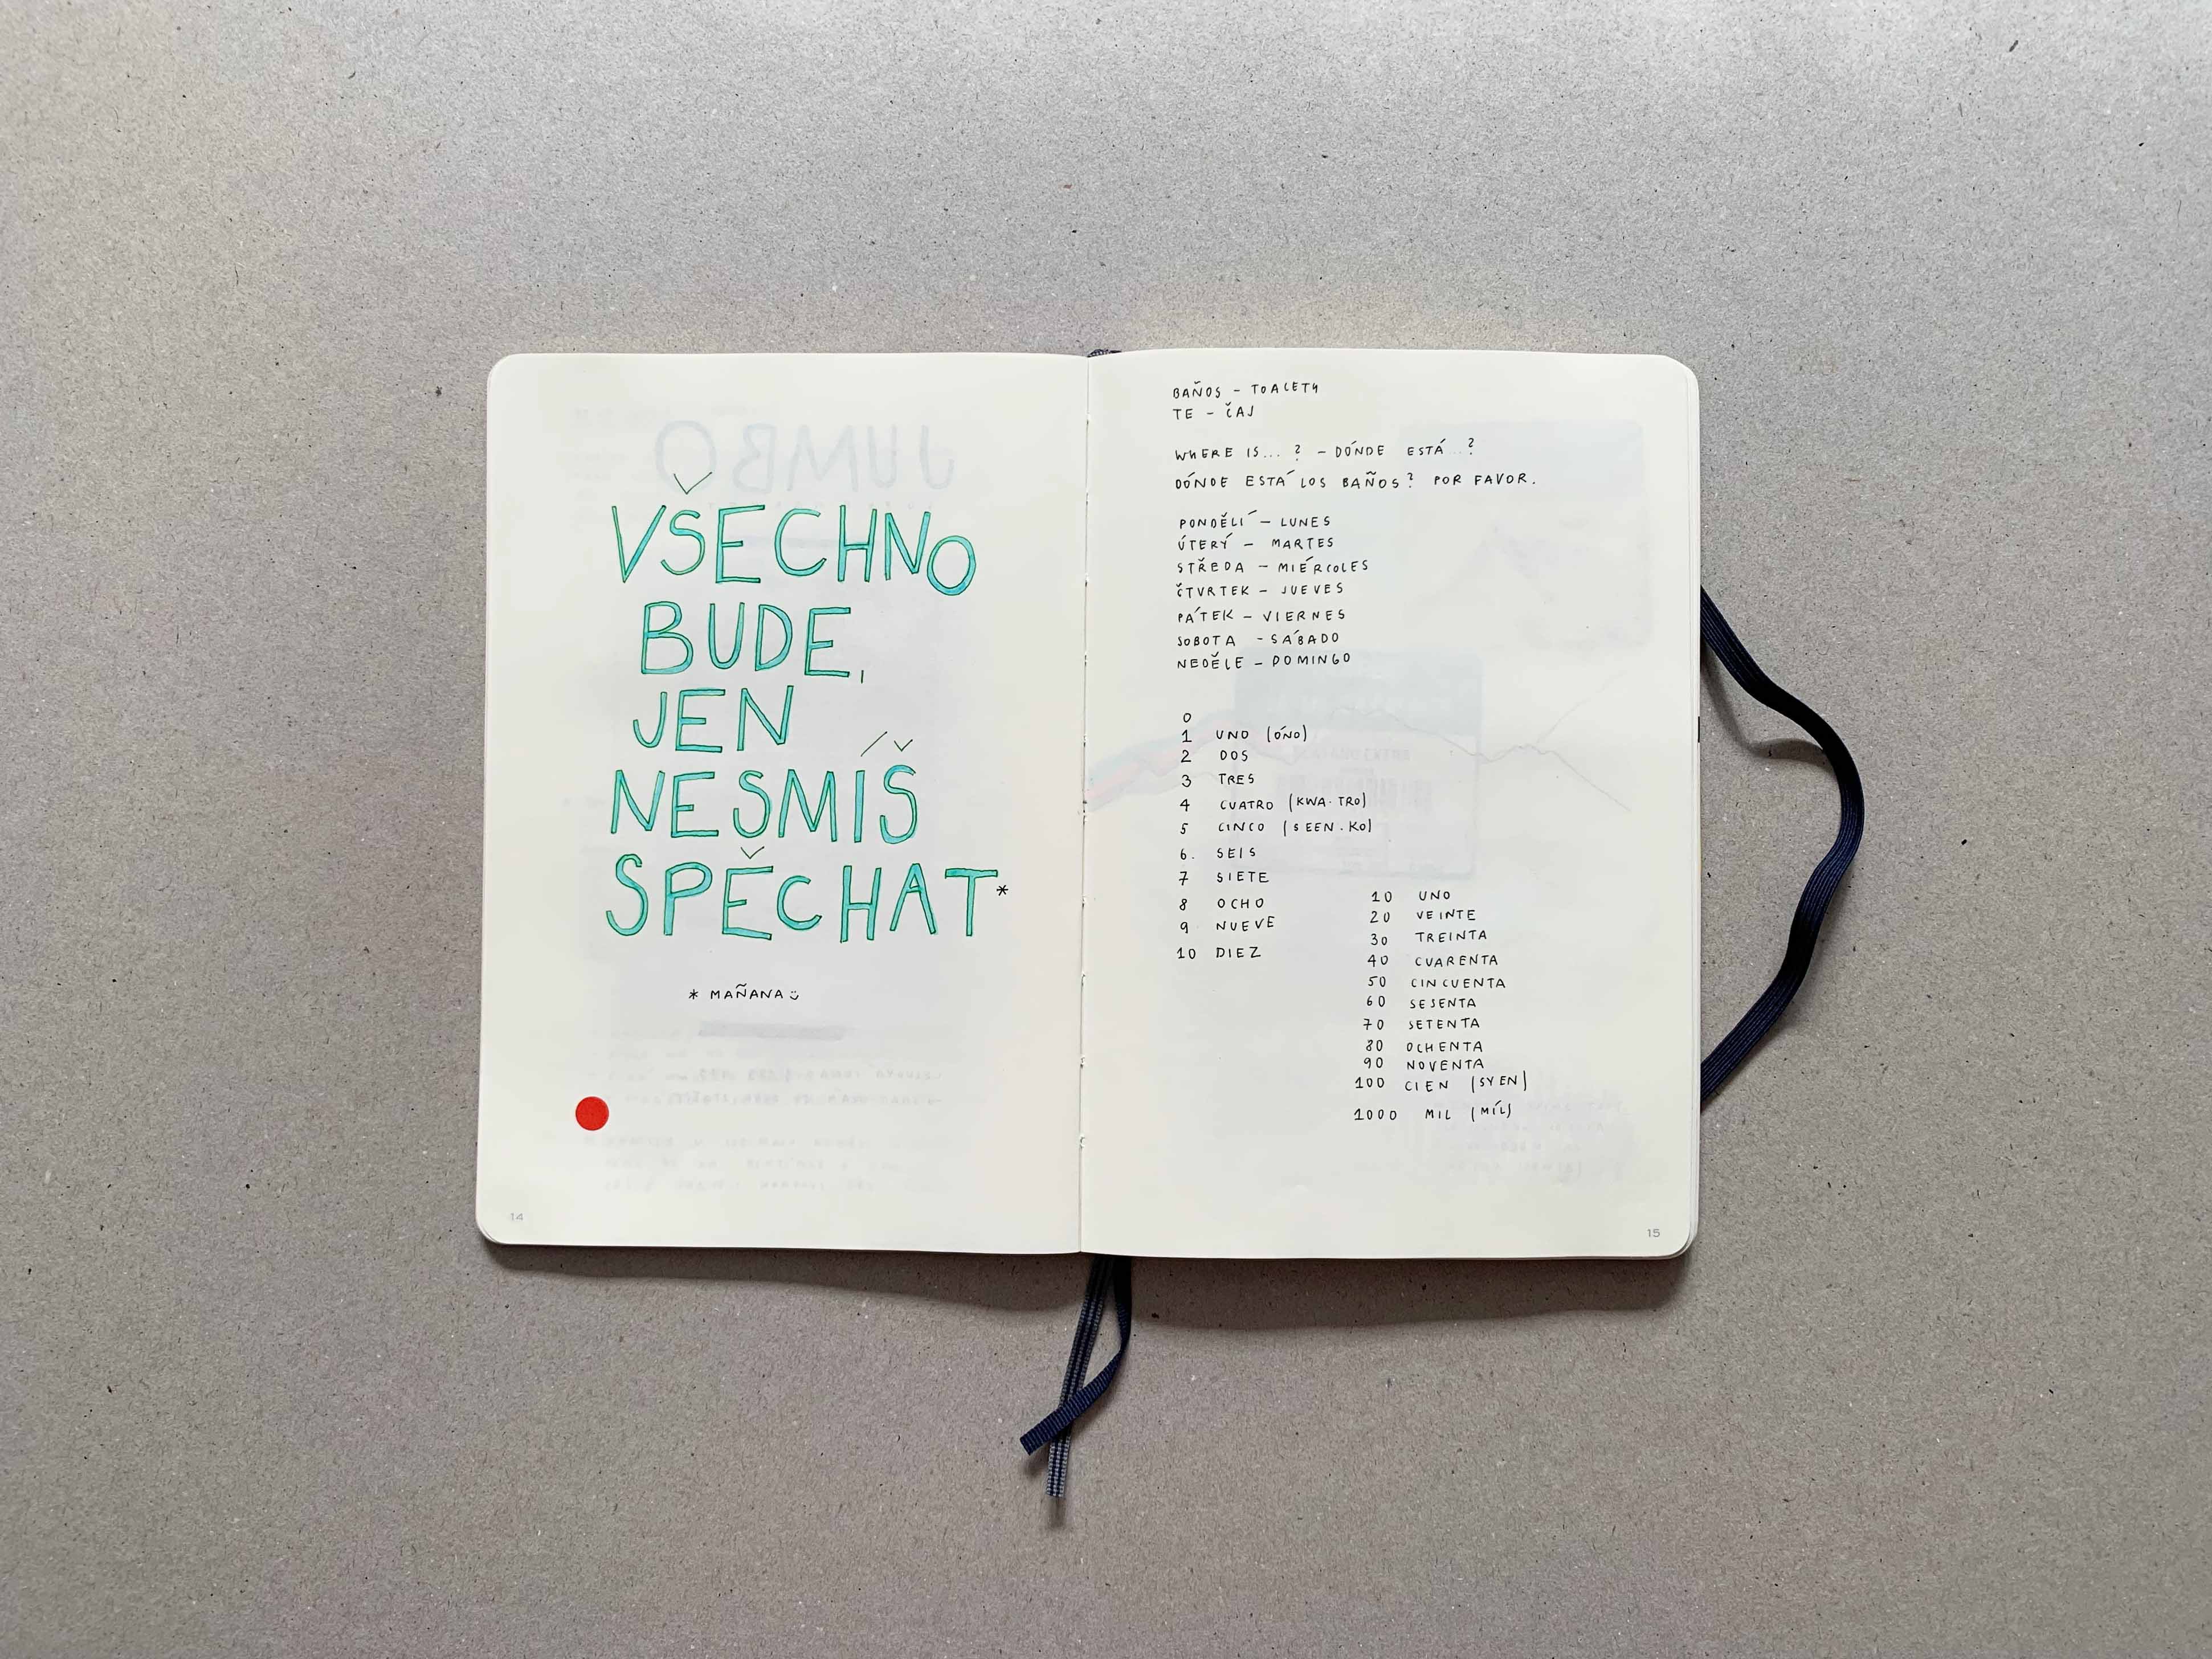 VŠECHNO
BUDE,
JEN
NESMÍŠ
SPĚCHAT*
* MAÑANA
14
BAÑOS - TOALETY
TE - ČAJ
WHERE IS... ? - DÓNDE ESTÁ..?
DÓNDE ESTÁ LOS BAÑOS? POR FAVOR.
PONDĚLÍ - LUNES
ÚTERÝ - MARTES
STŘEDA - MIÉRCOLES
ČTVRTEK - JUEVES
PÁTEK - VIERNES
SOBOTA - SÁBADO
NEDĚLE - DOMINGO
0
1 UNO (ÓNO)
2 DOS
3 TRES
4 CUATRO (KWA·TRO)
5 CINCO (SEEN·KO)
6. SEIS
7 SIETE
8 OCHO
9 NUEVE
10 DIEZ
10 UNO
20 VEINTE
30 TREINTA
40 CUARENTA
50 CINCUENTA
60 SESENTA
70 SETENTA
80 OCHENTA
90 NOVENTA
100 CIEN (SYEN)
1000 MIL (MÍL)
15